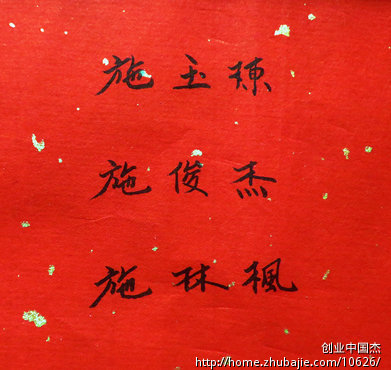 施玉琜
施俊杰
施林楓
创业中国杰
http://home.zhubajie.com/10626/